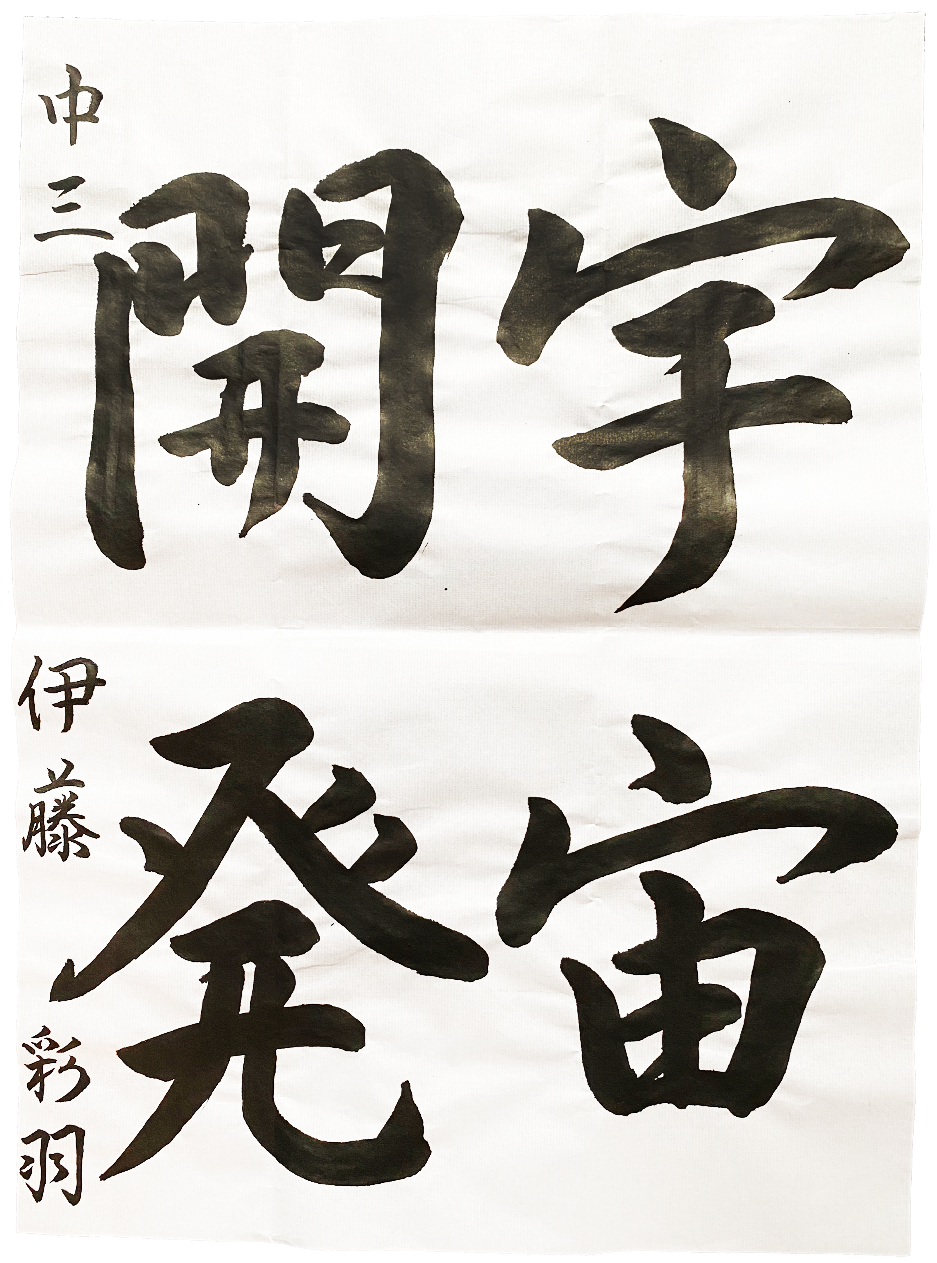 宇宙
開発
中三 伊藤 彩羽